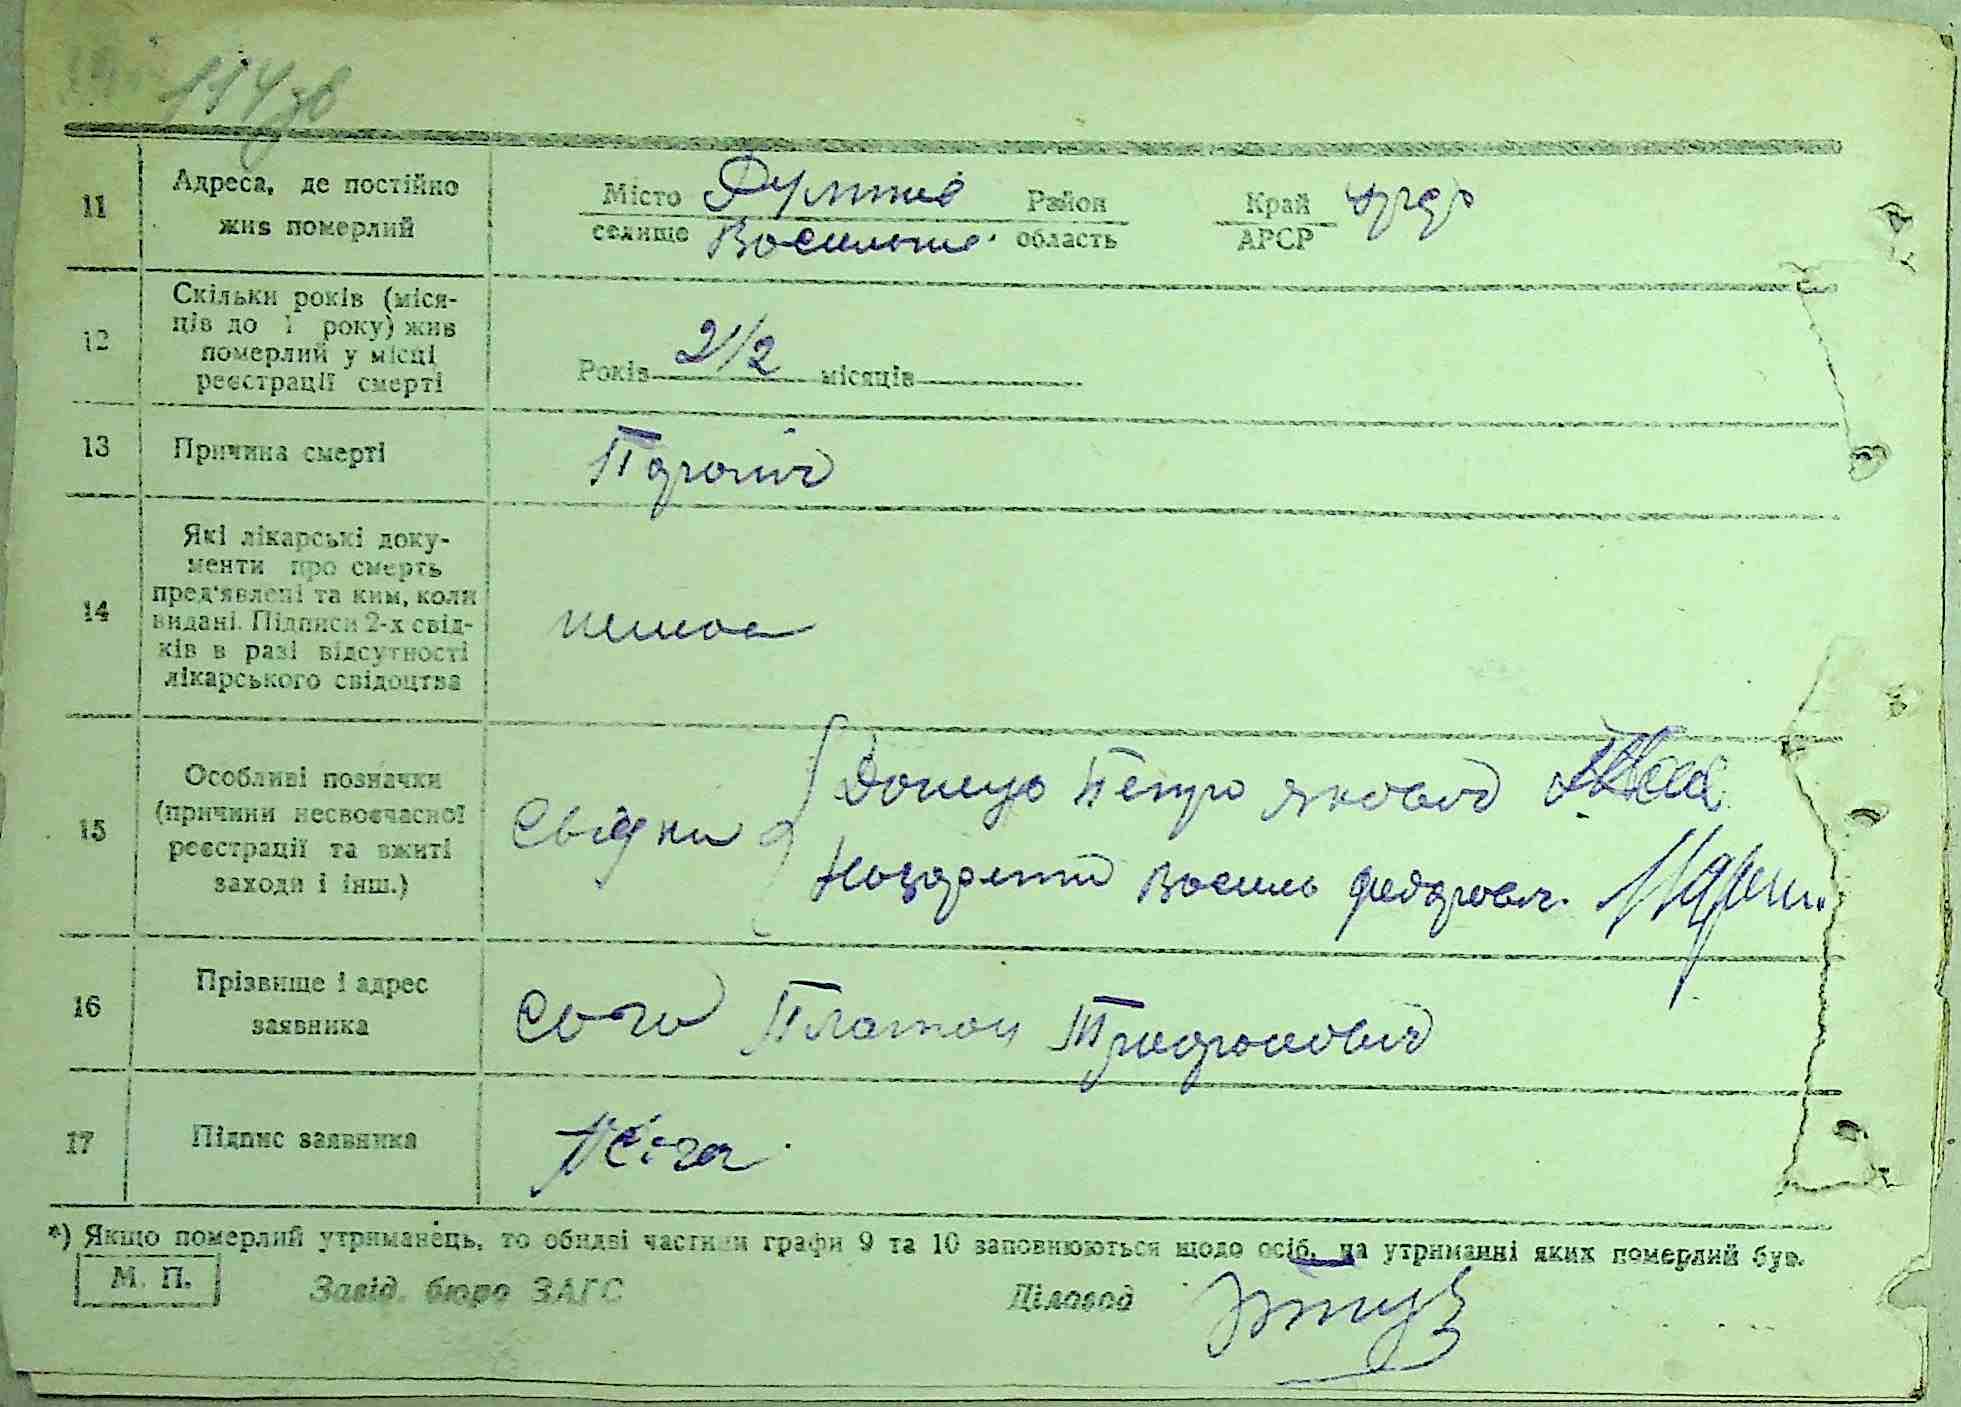 114 зв
11 Адреса, де постійно жив померлий
Місто селище Василькив. Район область Край АРСР УРСР
12 Скільки років (міся-
ців до 1 року) жив
померлий у місці
реєстрації смерті
Років 2 1/2 місяців
13 Причина смерті
14 Які лікарські доку-
менти про смерть
пред'явлені та ким, коли
видані. Підписи 2-х свід-
ків в разі відсутності
лікарського свідоцтва
немає
15 Особливі позначки
(причини несвоєчасної
реєстрації та вжиті
заходи і інш.)
Свідки
Донець Петро Якович
Назаренко Василь Федорович.
16 Прізвище і адрес
заявника
Сога Платон Трифонович
17 Підпис заявника
*) Якщо померлий утриманець, то обидві частини графи 9 та 10 заповнюються щодо осіб, на утриманні яких померлий був.
М. П. Завід. бюро ЗАГС Діловод